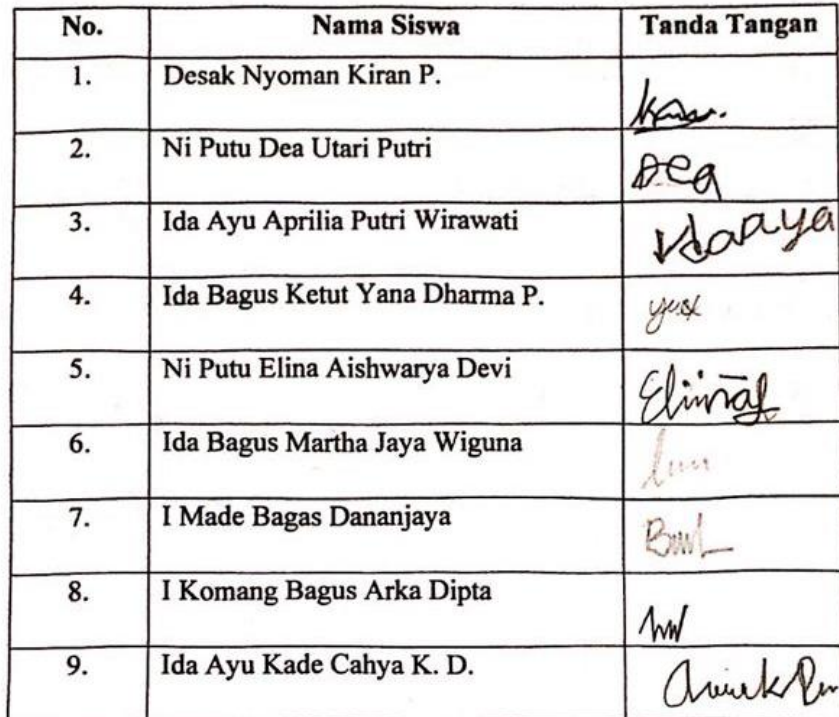 No. Nama Siswa Tanda Tangan
1. Desak Nyoman Kiran P.
2. Ni Putu Dea Utari Putri Dea
3. Ida Ayu Aprilia Putri Wirawati
4. Ida Bagus Ketut Yana Dharma P.
5. Ni Putu Elina Aishwarya Devi
6. Ida Bagus Martha Jaya Wiguna
7. I Made Bagas Dananjaya
8. I Komang Bagus Arka Dipta
9. Ida Ayu Kade Cahya K. D.